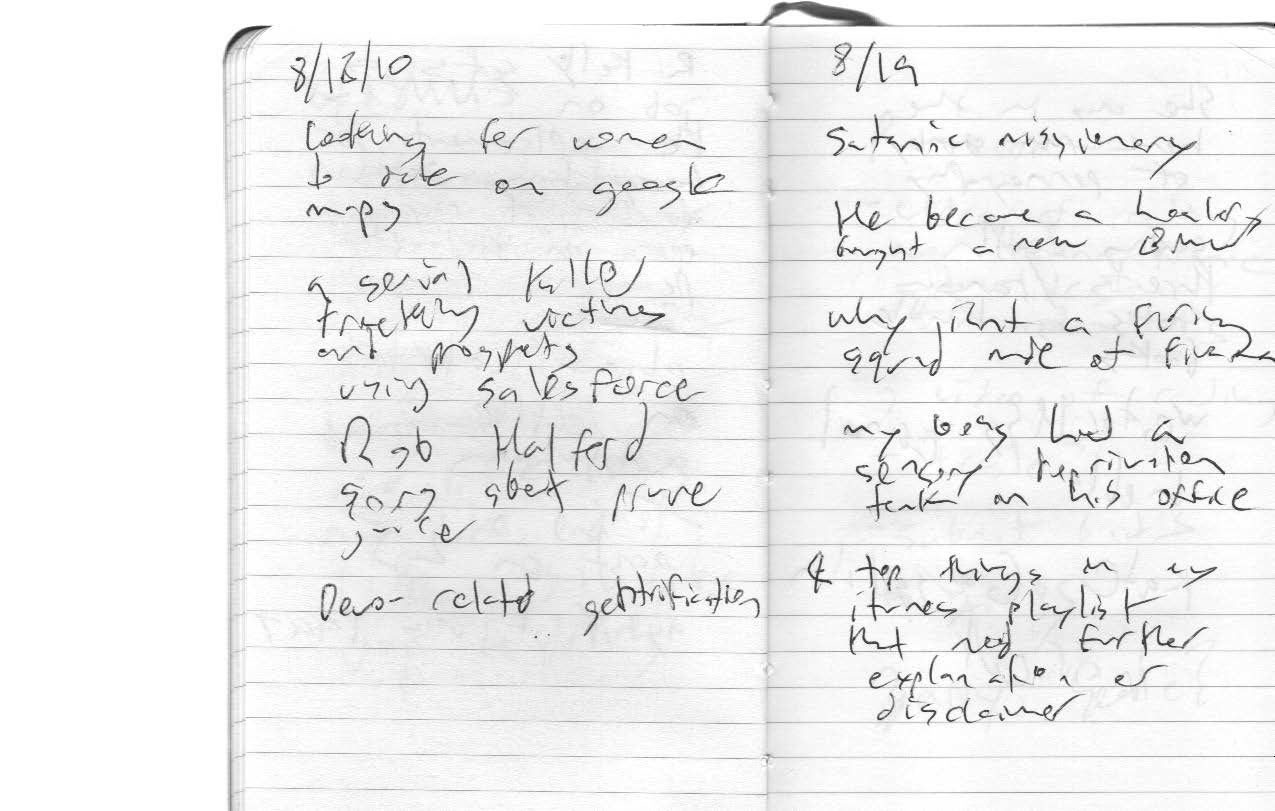 8/12/10
Looking for women
to rate on google
maps
a serial killer
tracking victims
and prospects
using salesforce
Rob Halford
song about prune
juice
Devo-related gentrification
8/19
satanic missionary
He became a
bought a new BMW
why isn't a firing
squad made of
my boss had a
sensory deprivation
tank in his office
& top things in my
itunes playlist
that need further
explanation or
disclaimer